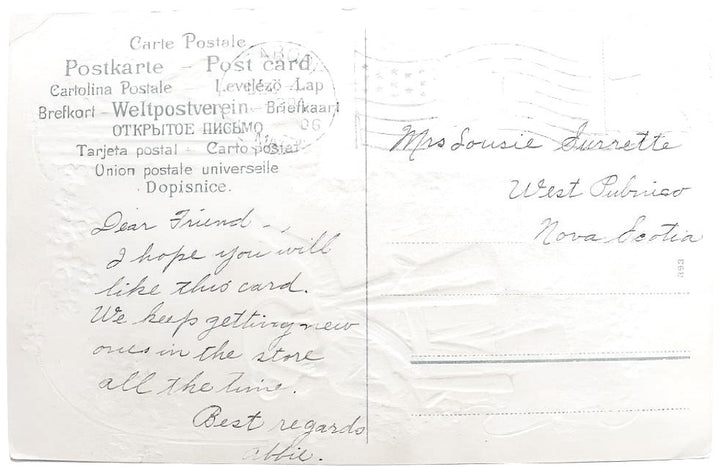 Carte Postale
Postkarte - Post card
Cartolina Postale - Levelézö-Lap
Brefkort - Weltpostverein - Briefkaart
ОТКРЫТОЕ ПИСЬМО 06
Tarjeta postal - Carto postal
Union postale universelle
Dopisnice.
Mrs Lousie Surrette
West Pubnico
Nova Scotia
393
Dear Friend - -
I hope you will
like this card.
We keep getting new
ones in the store
all the time.
Best regards
Abbie.